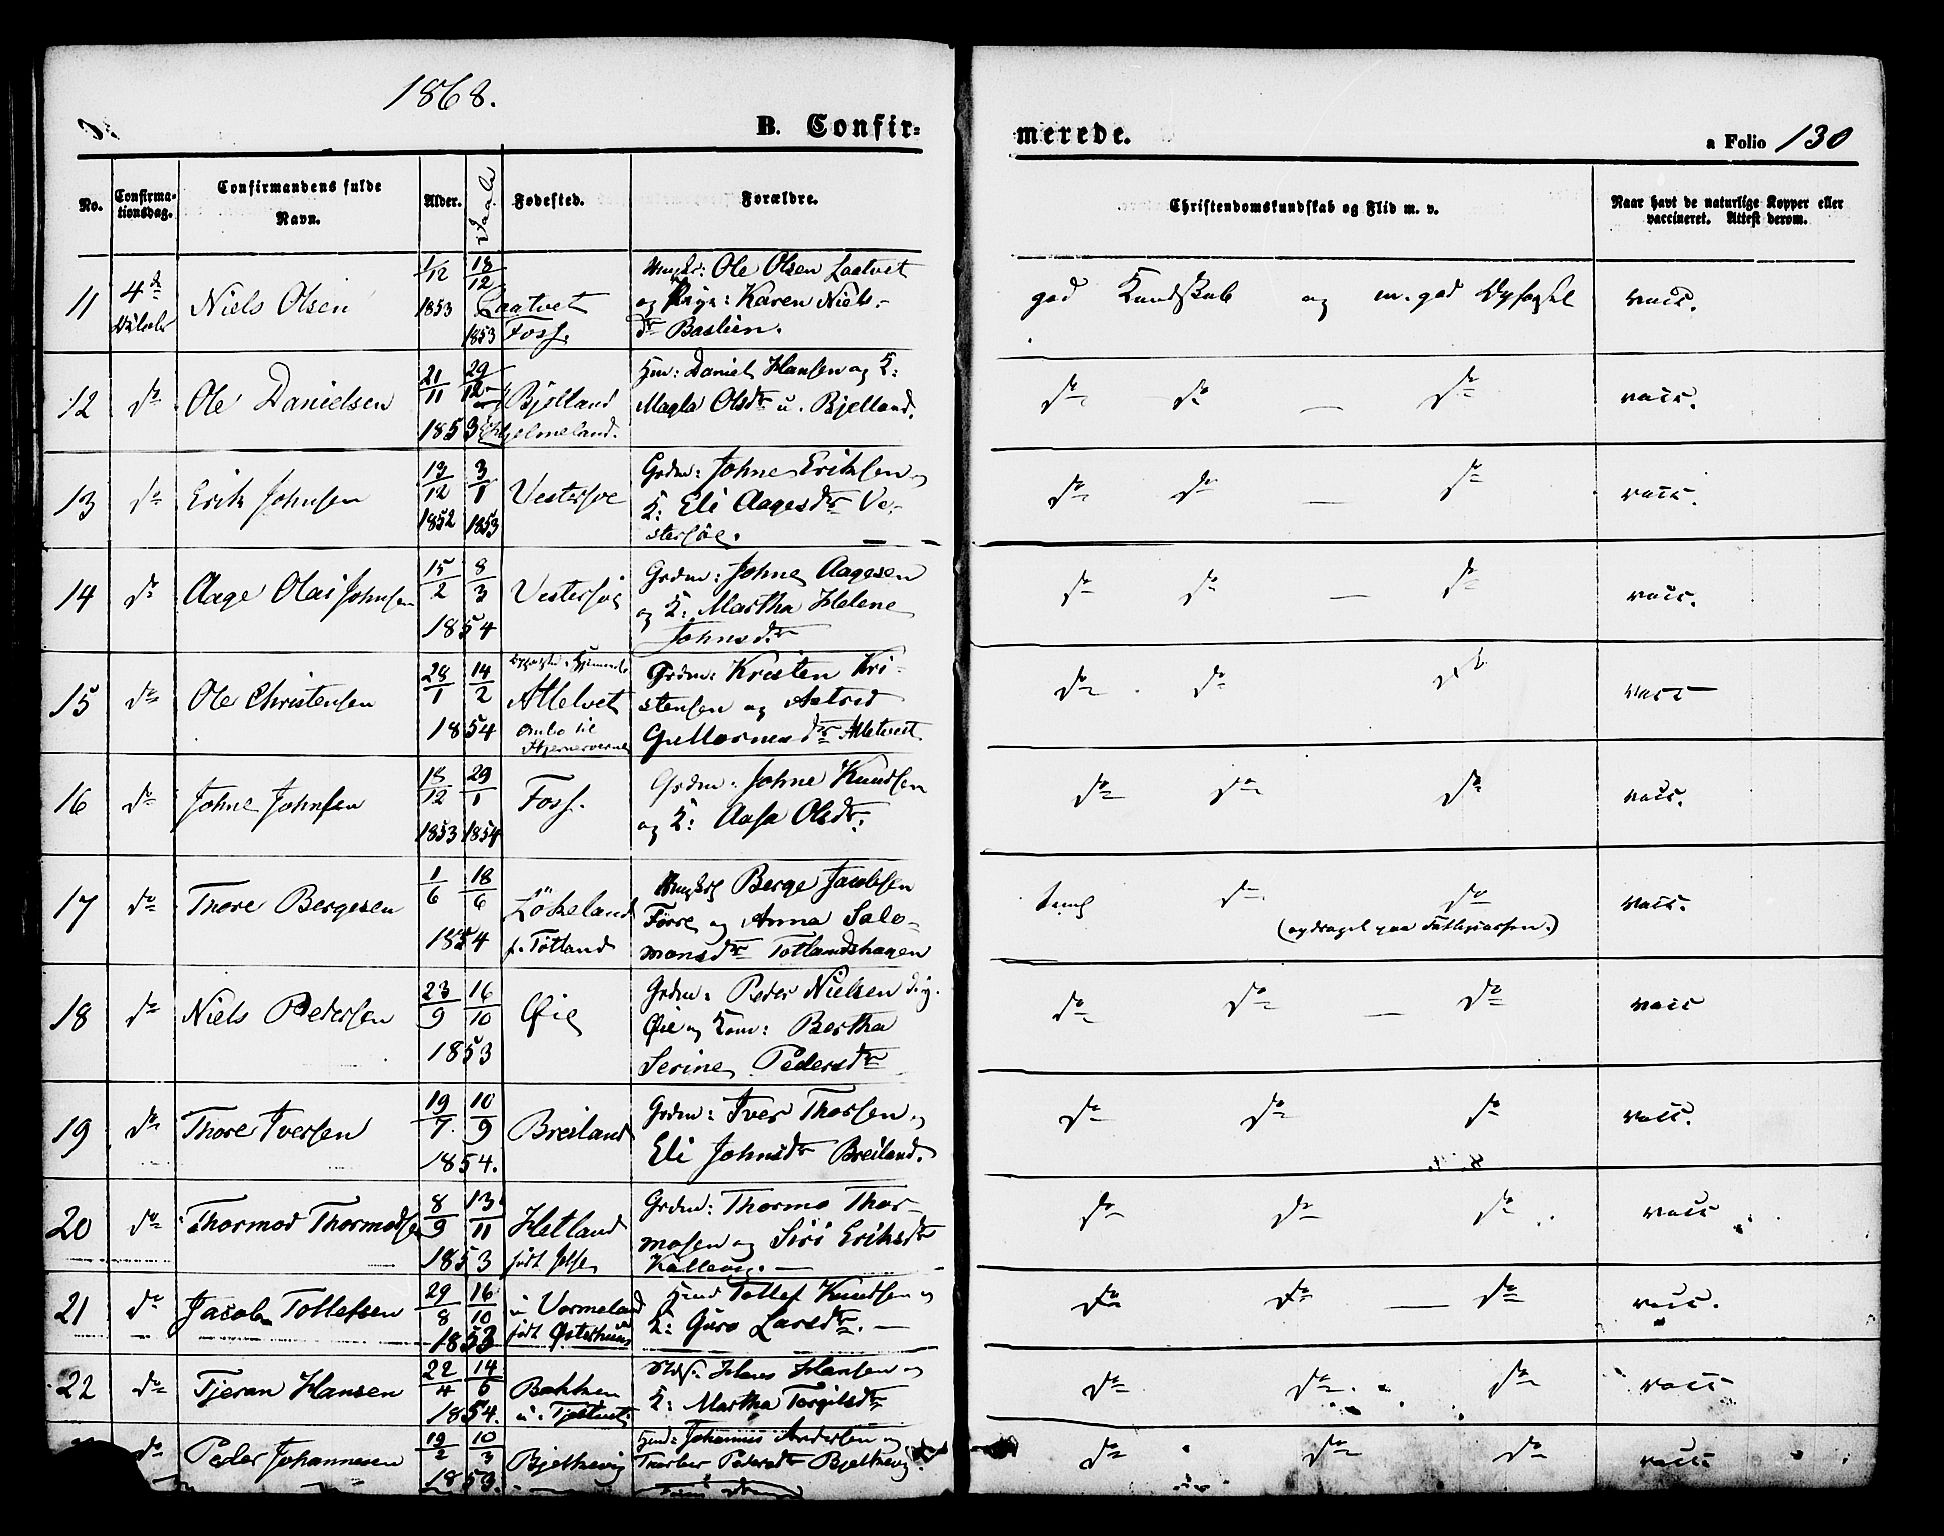 1868.
B. Confir=
merede.
a Folio 130
No.
Confirma-
tionsdag.
Confirmandens fulde
Navn.
Alder.
Daab
Fødested.
Forældre.
Christendomskundskab og Flid m. v.
Naar havt de naturlige Kopper eller
vaccineret. Attest derom.
11 4de Niels Olsen 1/12 1853 18/12 1853 Laatvet
Foss.
Ole Olsen Laatvet
og Karen Niels-
dr Bastien.
god Kundskab og m. god vacc.
12 do Ole Danielsen 21/11 29/12 1853 Bjelland
Hjelmeland.
Hm: Daniel Hansen og K:
Magla Olsdr u. Bjelland.
do do — do vacc.
13 do Erik Johnsen 13/12 1852 3/1 1853 Vestersøe
Grdm: Johne Eriksen og
K: Eli Aagesdr Ve-
stersöe.
do do — do vacc.
14 do Aage Olai Johnsen 15/2 8/3 1854 Vestersøe
Grdm: Johne Aagesen
og K: Martha Helene
Johnsdr
do do — do vacc.
15 do Ole Christensen 28/1 14/2 1854 Atletvet
Ombo til
Grdm: Kristen Kri-
stensen og Astrid
Guttormsdr Atletveit
do do do vacc
16 do Johne Johnsen 18/12 1853 29/1 1854 Foss.
Grdm: Johne Knudsen
og K: Aasa Olsdr.
do do do vacc.
17 do Thore Bergesen 1/6 18/6 1854 Lökeland
f. Tötland
Berge Jacobsen
Førre og Anna Salo-
monsdr Totlandshagen
do do
vacc.
18 do Niels Pedersen 23/9 16/10 1853 Øie
Grdm: Peder Nielsen
Øie og Kone: Bertha
Serine Pedersdr
do do — do vacc
19 do Thore Iversen 19/7 10/9 1854. Breiland
Grdm: Iver Thorsen og
Eli Johnsdr Breiland.
do do do vacc.
20 do Thormod Thormodsen 8/9 13/11 1853 Hetland
født Jelse
Grdm: Thormo Thor-
mosen og Siri Eriksdr
Kallevig. —
do do do vacc
21 do Jacob Tollefsen 29/8 16/10 1853 u Vormeland
født
Hmd Tollef Knudsen og
K: Guro Larsdr. —
do do — do vacc.
22 do Tjeran Hansen 22/4 14/6 1854. Bakken
u. Tjeltvet.
Hans Hansen og
K: Martha Torgilsdr
do do do vacc
do Peder Johannesen 19/2 10/3 1853. Bjelkevig
Hmd: Johannes Andersen og
Pedersdr Bjelkevig
do do do vacc